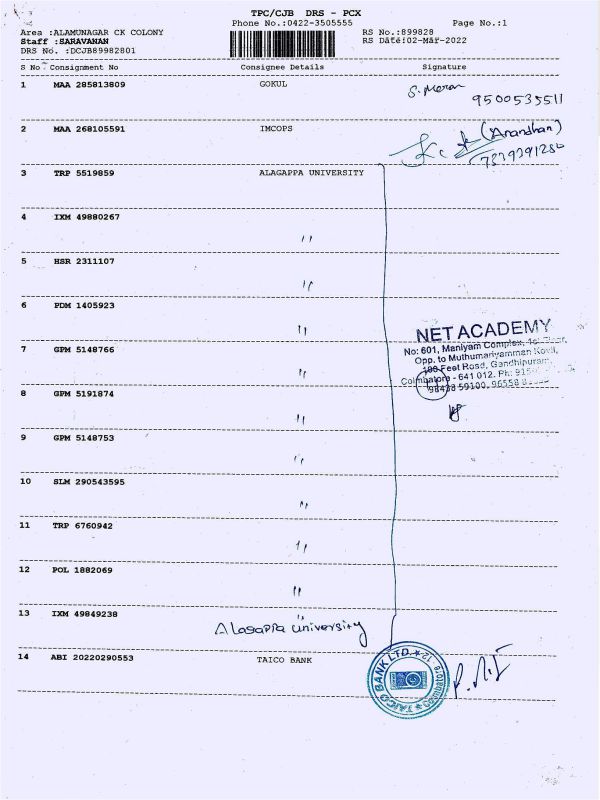 TPC/CJB DRS - PCX
Phone No.:0422-3505555 Page No.:1
Area :ALAMUNAGAR CK COLONY RS No.:899828
Staff :SARAVANAN RS Date:02-Mar-2022
DRS No. :DCJB89982801
S No Consignment No Consignee Details Signature
1 MAA 285813809 GOKUL
9500535511
2 MAA 268105591 IMCOPS (Anandhan)
3 TRP 5519859 ALAGAPPA UNIVERSITY
4 IXM 49880267
"
5 HSR 2311107
"
6 PDM 1405923
"
NET ACADEMY
7 GPM 5148766 No: 601, Maniyam Complex,
Opp. to Muthumariyamman Kovil,
" 100 Feet Road, Gandhipuram,
Coimbatore - 641 012. Ph:
8 GPM 5191874 98428 59100, 96558
"
9 GPM 5148753
"
10 SLM 290543595
"
11 TRP 6760942
"
12 POL 1882069
"
13 IXM 49849238 "
Alagappa University
14 ABI 20220290553 TAICO BANK
TAICO BANK LTD. Coimbatore 12